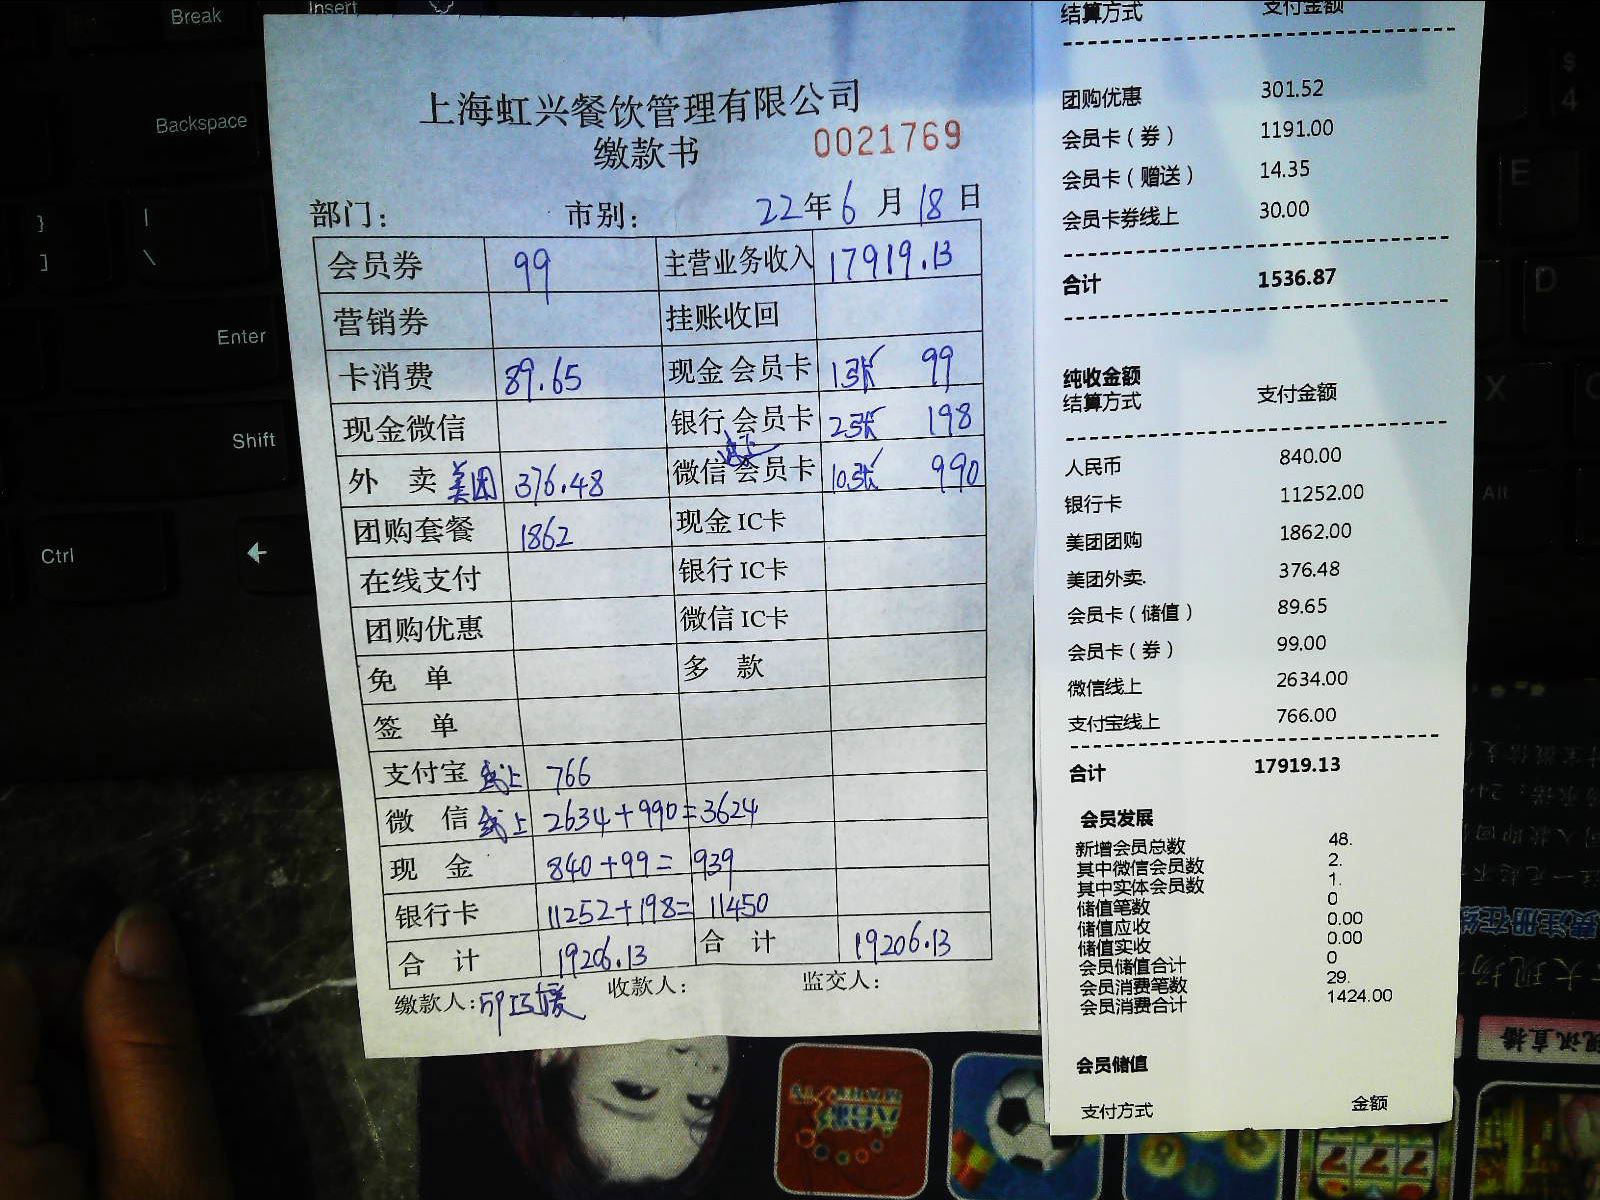 Break
Insert
Backspace
}
]
|
\
Enter
Shift
Ctrl
$
4
E
D
X
Alt
上海虹兴餐饮管理有限公司
缴款书 0021769
部门： 市别： 22年6月18日
会员券 99 主营业务收入 17919.13
营销券 挂账收回
卡消费 89.65 现金 会员卡 1张 99
现金微信 银行 会员卡 2张 198
外 卖 美团 376.48 微信 线上 会员卡 10张 990
团购套餐 1862 现金 IC卡
在线支付 银行 IC卡
团购优惠 微信 IC卡
免 单 多 款
签 单
支付宝 线上 766
微 信 线上 2634+990=3624
现 金 840+99=939
银行卡 11252+198=11450
合 计 19206.13 合 计 19206.13
缴款人： 收款人： 监交人：
结算方式 支付金额
团购优惠 301.52
会员卡（券） 1191.00
会员卡（赠送） 14.35
会员卡券线上 30.00
合计 1536.87
纯收金额
结算方式 支付金额
人民币 840.00
银行卡 11252.00
美团团购 1862.00
美团外卖. 376.48
会员卡（储值） 89.65
会员卡（券） 99.00
微信线上 2634.00
支付宝线上 766.00
合计 17919.13
会员发展
新增会员总数 48.
其中微信会员数 2.
其中实体会员数 1.
储值笔数 0
储值应收 0.00
储值实收 0.00
会员储值合计 0
会员消费笔数 29.
会员消费合计 1424.00
会员储值
支付方式 金额
视讯直播
777